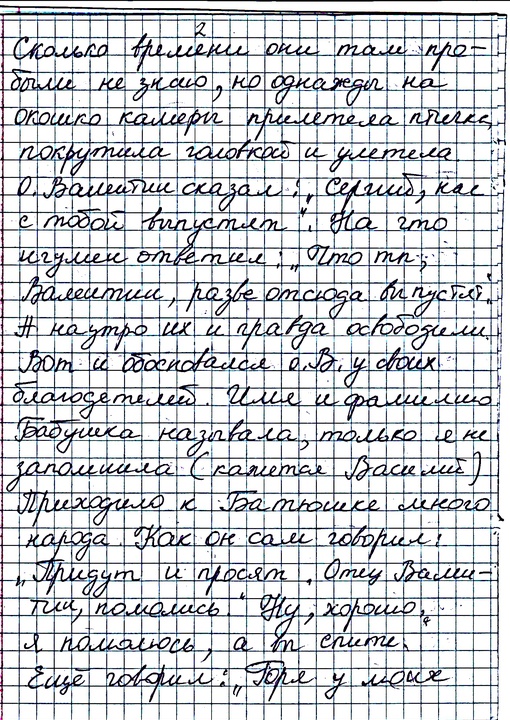 2
Сколько времени они там про-
были не знаю, но однажды на
окошко камеры прилетела птичка,
покрутила головкой и улетела.
О. Валентин сказал: „Сергий, нас
с тобой выпустят". На что
игумен ответил: „Что ты,
Валентин, разве отсюда выпустят".
А наутро их и правда освободили.
Вот и обосновался о. В. у своих
благодетелей. Имя и фамилию
Бабушка называла, только я не
запомнила (кажется Василий)
Приходило к Батюшке много
народа. Как он сам говорил:
„Придут и просят. Отец Вален-
тин, помолись." Ну, хорошо,
я помолюсь, а вы спите.
Ещё говорил: „Горя у моих